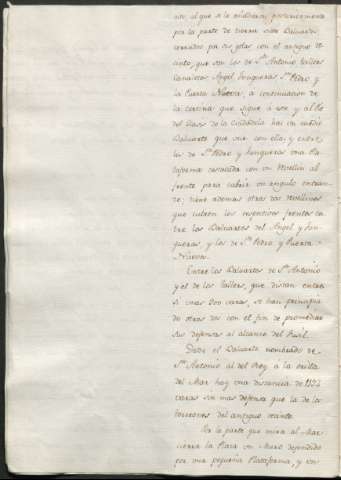 nto, al que se le añadieron posteriormente
por la parte de tierra siete Baluartes
cerrados por sus golas con el antiguo re-
cinto, que son los de Sn. Antonio, tallers
Canaletas, Angel, Junqueras, Sn. Pedro y
la Puerta Nueva; a continuacion de
la cortina que sigue á este y al pie
del Glasis de la Ciudadela hai un medio
Baluarte que une con ella, y entre
los de Sn. Pedro y Junqueras una Pla-
taforma destacada con un Revellin al
frente para cubrir un angulo entran-
te; tiene ademas otras dos Revellines
que cubren los respectivos frentes en-
tre los Baluartes del Angel y Jun-
queras, y los de Sn. Pedro y Puerta-
Nueva.
Entre los Baluartes de Sn. Antonio
y el de los tallers, que distan entre
si unas 800 varas, se han principia-
do otros dos con el fin de promediar
sus defensas al alcance del fusil.
Desde el Baluarte nombrado de
Sn. Antonio al del Rey a la orilla
del Mar hay una distancia de
varas sin mas defensa que la de los
torreones del antiguo recinto.
Por la parte que mira al Mar
cierra la Plaza un Muro defendido
por una pequeña Plataforma, y un